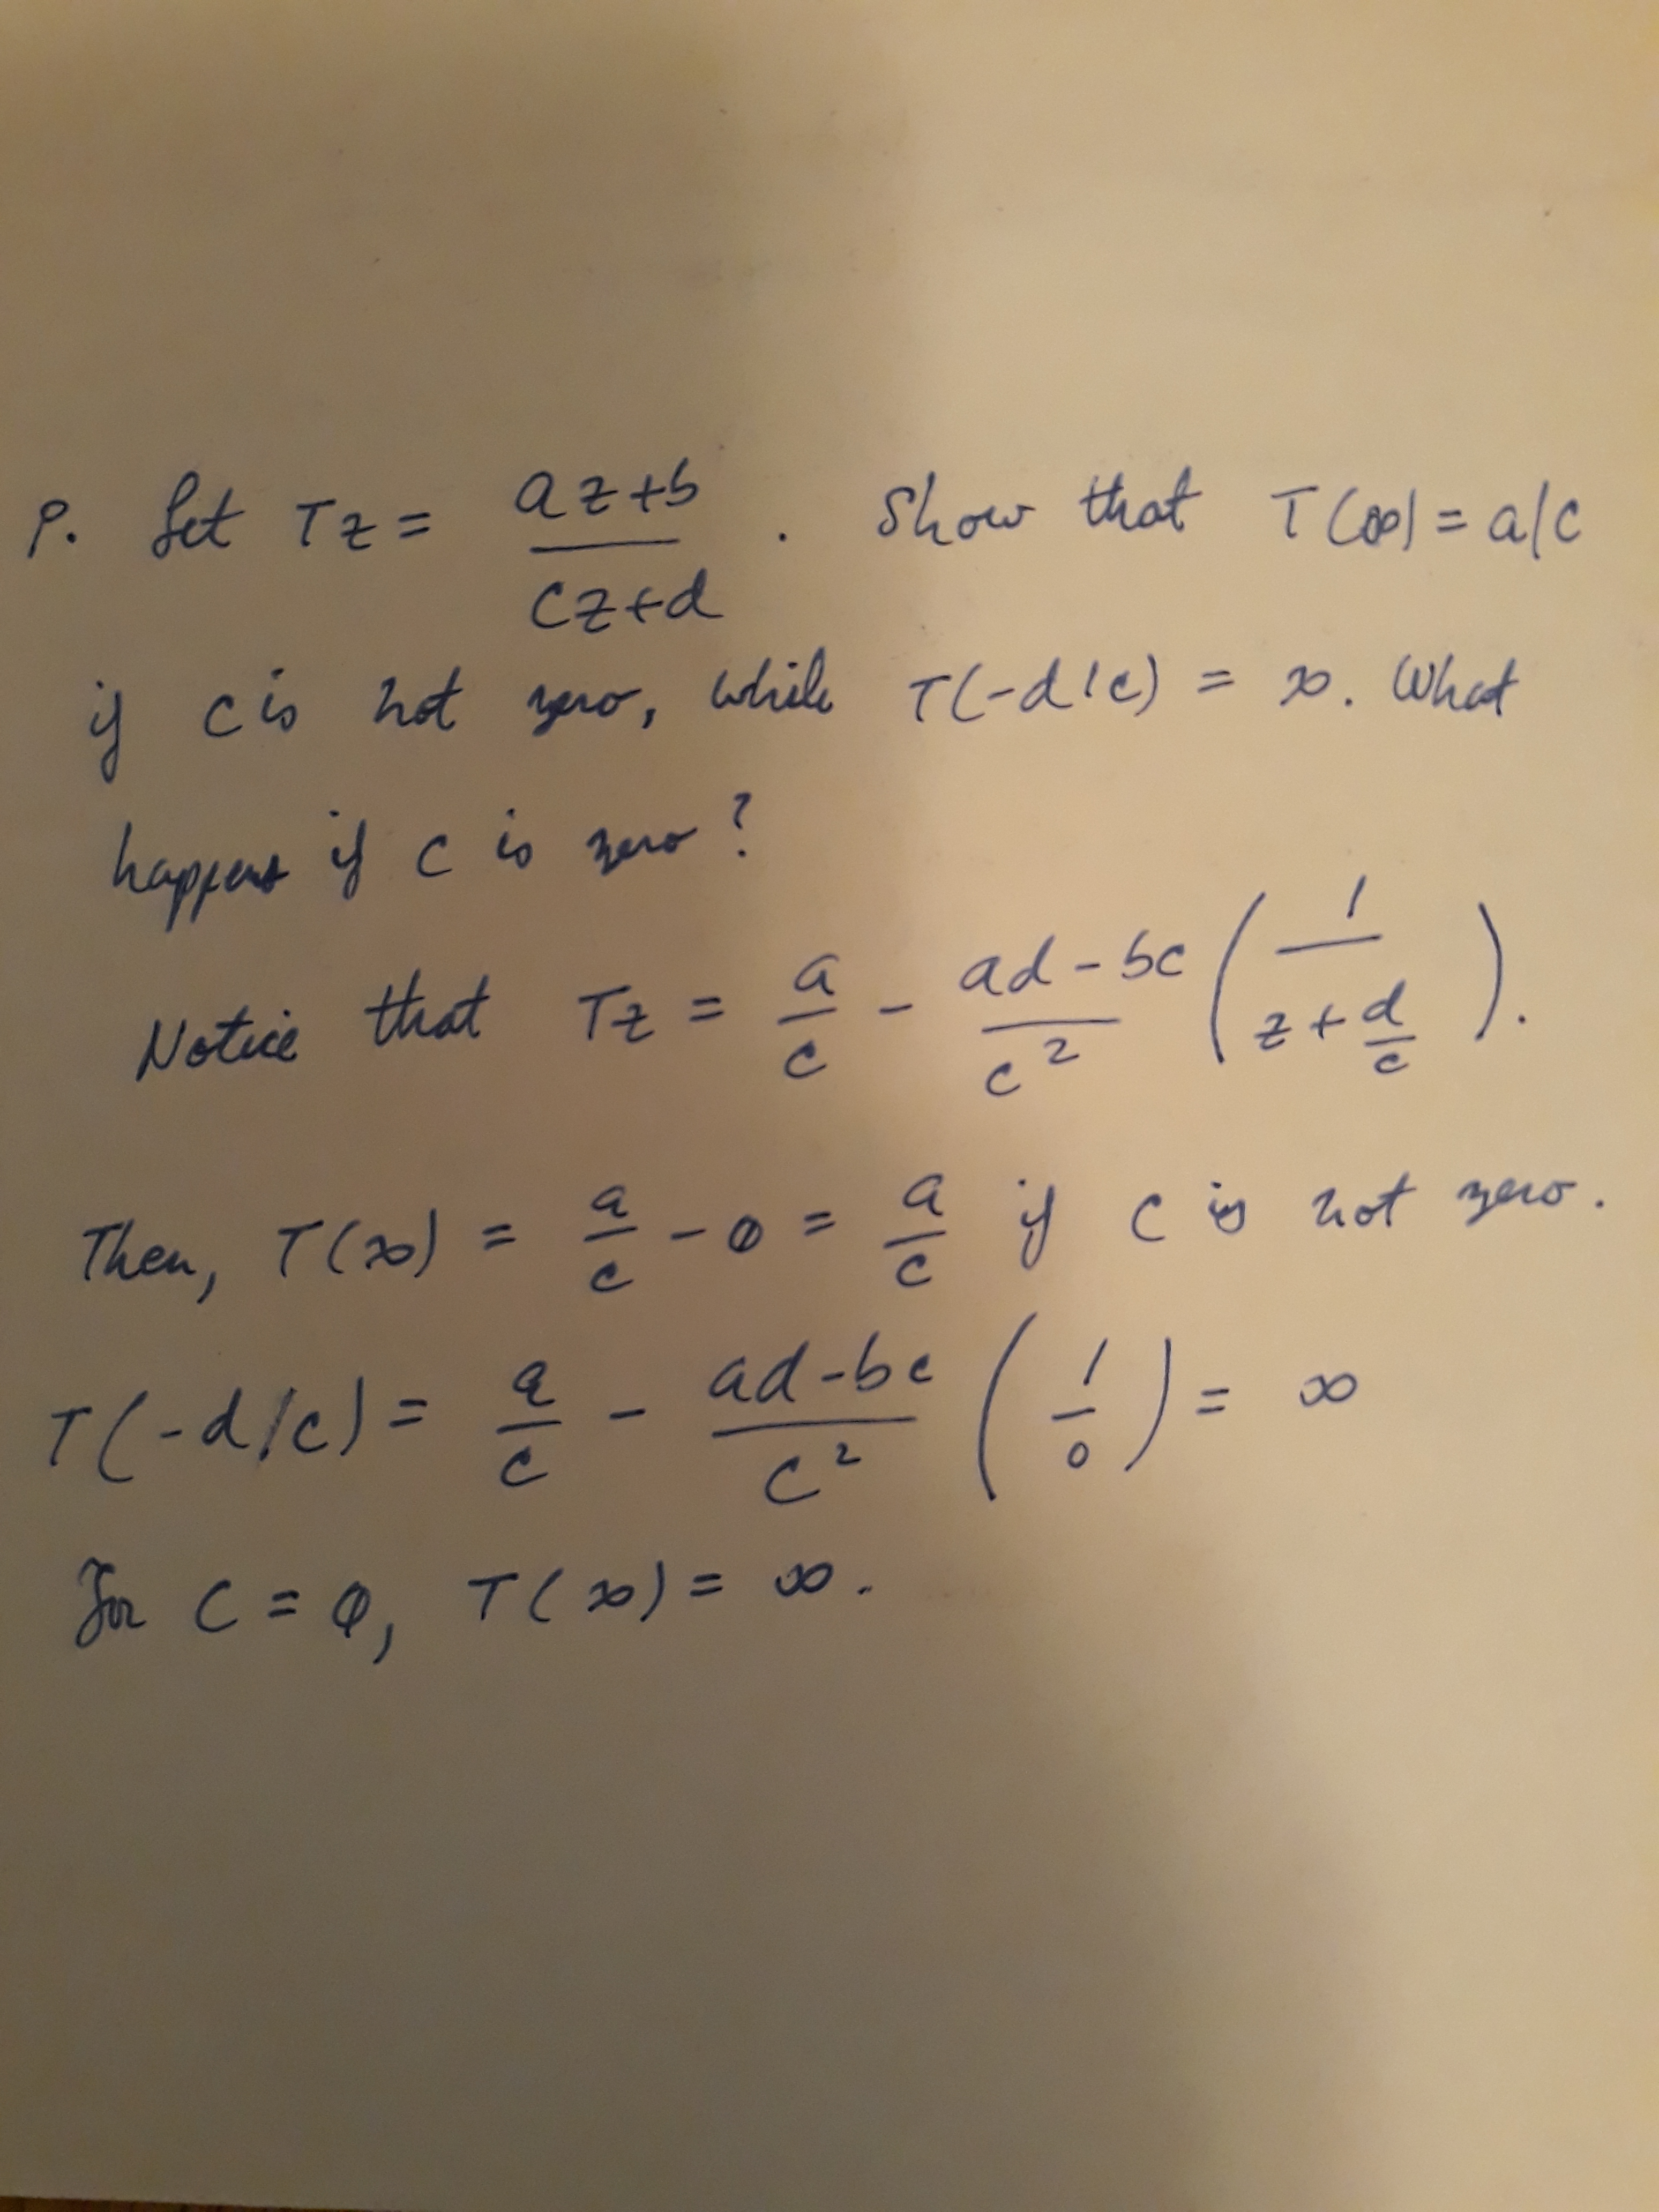 P. Let Tz = (az+b)/(cz+d). Show that T(∞) = a/c
if c is not zero, while T(-d/c) = ∞. What
happens if c is zero?
Notice that Tz = a/c - (ad-bc)/c² (1/(z+d/c)).
Then, T(∞) = a/c - 0 = a/c if c is not zero.
T(-d/c) = a/c - (ad-bc)/c² (1/0) = ∞
For c = 0, T(∞) = ∞.